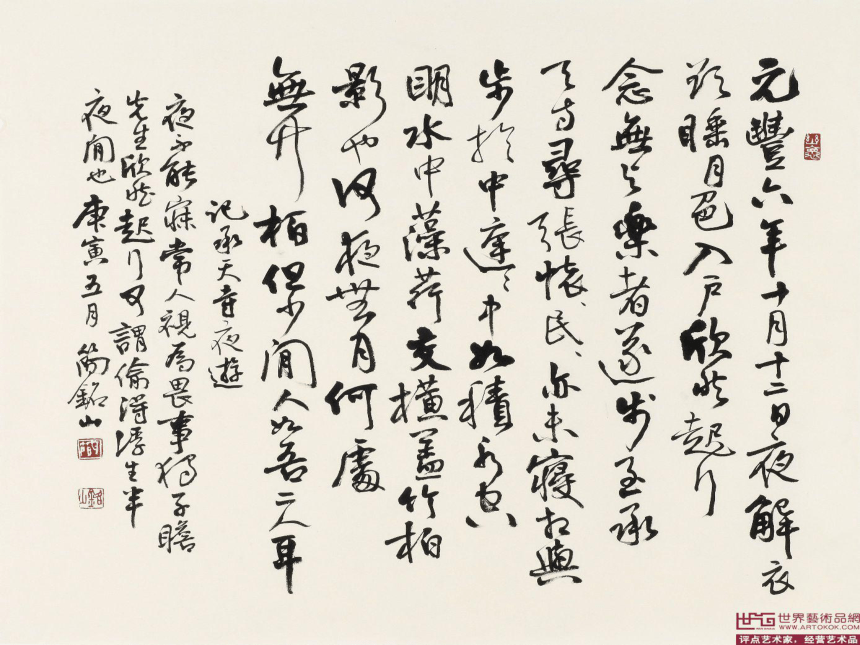 元豐六年十月十二日夜解衣
欲睡月色入户欣然起行
念無与樂者遂步至承
天寺尋張懷民懷民亦未寢相與
步於中庭庭中如積水空
明水中藻荇交橫蓋竹柏
影也何夜無月何處
無竹柏但少閒人如吾二人耳
記承天寺夜遊
夜不能寐常人視為畏事獨子瞻
先生欣然起行可謂偷得浮生半
夜閒也 庚寅五月 銘山
世界藝術品網
WWW.ARTOKOK.COM
评点艺术家，经营艺术品